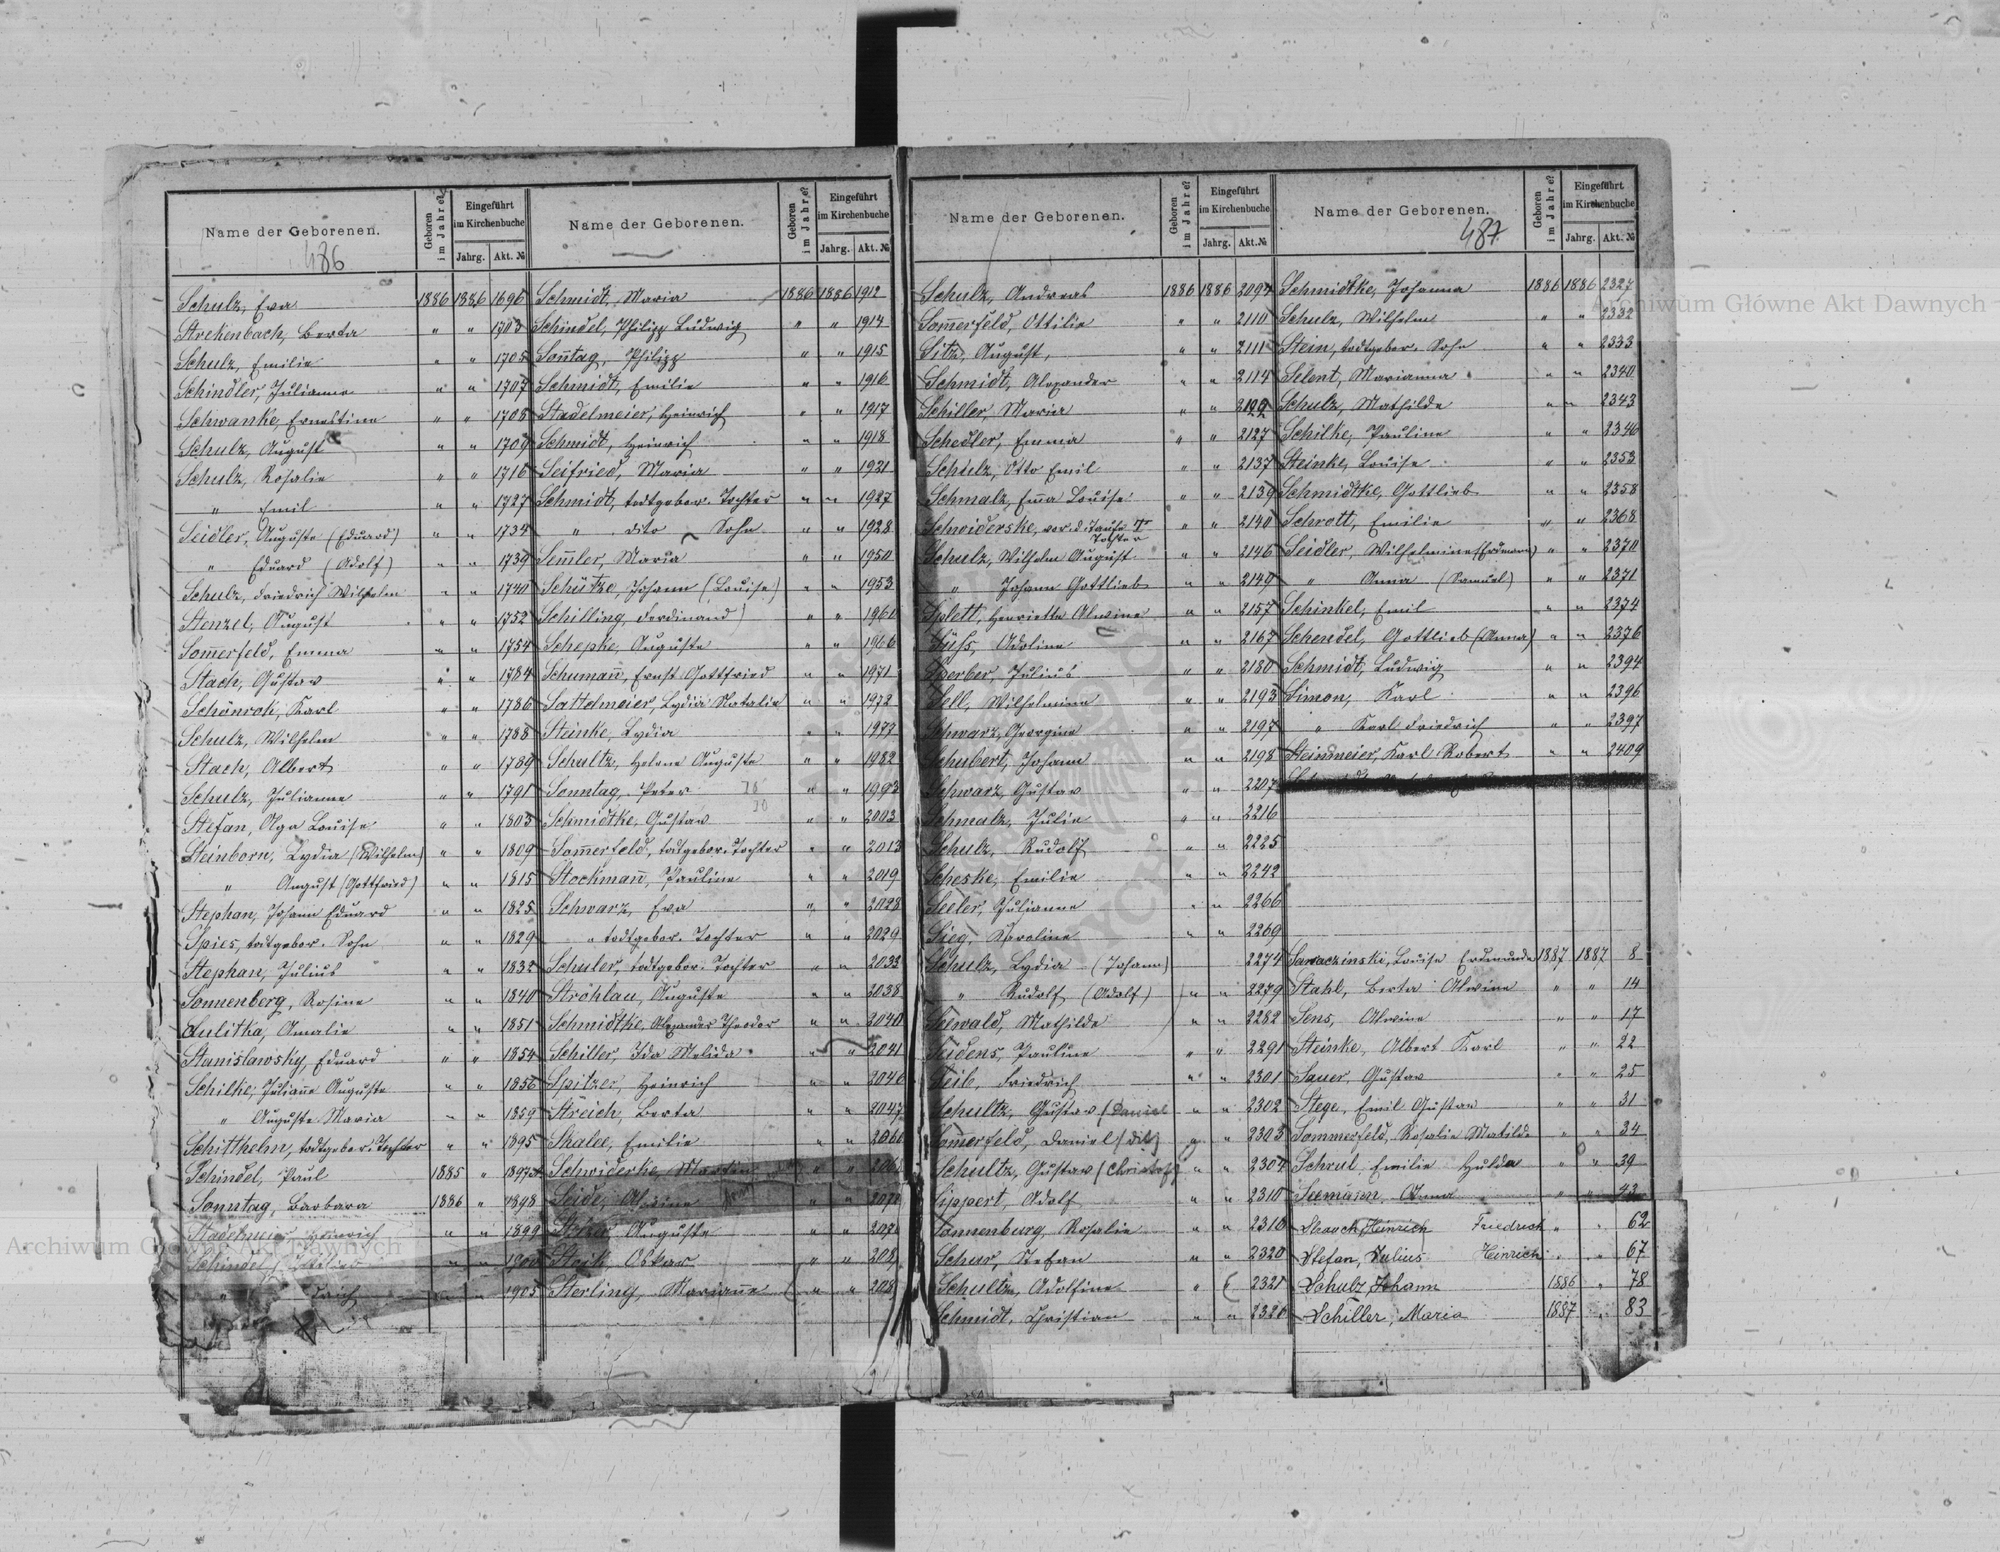 Name der Geborenen.
486
Geboren im Jahre?
Eingeführt im Kirchenbuche
Jahrg. Akt. №
Schulz, Eva 1886 1886 1696
Strekenbach, Berta " " 1703
Schulz, Emilie " " 1705
Schindler, Julianna " " 1707
Schwanke, Ernestine " " 1708
Schulz, August " " 1709
Schulz, Rosalie " " 1716
" Emil " " 1727
Seidler, Auguste (Eduard) " " 1734
" Eduard (Adolf) " " 1739
Schulz, Friedrich Wilhelm " " 1740
Stenzel, August " " 1752
Som̅erfeld, Emma " " 1754
Stach, Gustav " " 1784
Schönrok, Karl " " 1786
Schulz, Wilhelm " " 1788
Stach, Albert " " 1789
Schulz, Julianne " " 1791
Stefan, Olga Louise " " 1803
Steinborn, Lydia (Wilhelm) " " 1809
" August (Gottfried) " " 1815
Stephan, Johann Eduard " " 1825
Spies, todtgebor. Sohn " " 1829
Stephan, Julius " " 1832
Sonnenberg, Rosine " " 1840
Sulitka, Amalie " " 1851
Stanislawsky, Eduard " " 1854
Schilke, Julian̅e Auguste " " 1856
" Auguste Maria " " 1859
Schitthelm, todtgebor. Tochter " " 1895
Schindel, Paul 1885 " 1897
Sonntag, Barbara 1886 " 1898
Stadelmeier, Heinrich " " 1899
Schindel, " " 1900
" " " 1905
Name der Geborenen.
Geboren im Jahre?
Eingeführt im Kirchenbuche
Jahrg. Akt. №
Schmidt, Maria 1886 1886 1912
Schindel, Philipp Ludwig " " 1914
Son̅tag, Philipp " " 1915
Schmidt, Emilie " " 1916
Stadelmeier, Heinrich " " 1917
Schmidt, Heinrich " " 1918
Seifried, Maria " " 1921
Schmidt, todtgebor. Tochter " " 1927
" dito Sohn " " 1928
Sem̅ler, Maria " " 1950
Schütze, Johann (Louise) " " 1953
Schilling, Ferdinand " " 1960
Schepke, Auguste " " 1966
Schuman̅, Ernst Gottfried " " 1971
Sattelmeier, Lydia Natalie " " 1972
Steinke, Lydia " " 1973
Schultz, Helene Auguste " " 1982
Sonntag, Peter " " 1993
Schmidtke, Gustav " " 2003
Som̅erfeld, todtgebor. Tochter " " 2013
Stockman̅, Pauline " " 2019
Schwarz, Eva " " 2028
" todtgebor. Tochter " " 2029
Schuler, todtgebor. Tochter " " 2033
Ströhlau, Auguste " " 2038
Schmidtke, Alexander Theodor " " 2040
Schiller, Ida Melida " " 2041
Spitzer, Heinrich " " 2046
Streich, Berta " " 2047
Skalee, Emilie " " 2060
Schwiderke, Martin " "
Seide, Alwine " "
Auguste " "
Steik, Oskar " "
Sterling, Marian̅e " "
Name der Geborenen.
Geboren im Jahre?
Eingeführt im Kirchenbuche
Jahrg. Akt. №
Schulz, Andreas 1886 1886 2094
Som̅erfeld, Ottilie " " 2110
Sitz, August, " " 2111
Schmidt, Alexander " " 2114
Schiller, Maria " " 2122
Schedler, Emma " " 2127
Schulz, Otto Emil " " 2137
Schmalz, Em̅a Louise " " 2139
Schwiderske, vor d. Taufe † Tochter " " 2140
Schulz, Wilhelm August " " 2146
" Johann Gottlieb " " 2149
Splett, Henriette Alwine " " 2157
Süß, Adoline " " 2167
Sperber, Julius " " 2180
Sell, Wilhelmine " " 2193
Schwarz, Georgine " " 2197
Schubert, Johann " " 2198
Schwarz, Gustav " " 2207
Schmalz, Julie " " 2216
Schulz, Rudolf " " 2225
Scheske, Emilie " " 2242
Seeler, Julianne " " 2266
Sieg, Karoline " " 2269
Schulz, Lydia (Johann) 2274
" Rudolf (Adolf) " " 2279
Seewald, Mathilde " " 2282
Seidens, Pauline " " 2291
Seib, Friedrich " " 2301
Schultz, Gustav (Daniel " " 2302
Som̅erfeld, Daniel (dito) " " 2303
Schultz, Gustav (Christof) " " 2304
Sippert, Adolf " " 2310
Sonnenburg, Rosalie " " 2316
Schur, Stefan " " 2320
Schultz, Adolfine " " 2321
Schmidt, Christian " " 2326
Name der Geborenen.
487
Geboren im Jahre?
Eingeführt im Kirchenbuche
Jahrg. Akt. №
Schmidtke, Johanna 1886 1886 2327
Schulz, Wilhelm " " 2332
Stein, todtgebor. Sohn " " 2333
Selent, Marianna " " 2340
Schulz, Mathilde " " 2343
Schilke, Pauline " " 2346
Steinke, Louise " " 2353
Schmidtke, Gottlieb " " 2358
Schrott, Emilie " " 2368
Seidler, Wilhelmine (Erdmann) " " 2370
" Anna (Samuel) " " 2371
Schinkel, Emil " " 2374
Schendel, Gottlieb (Anna) " " 2376
Schmidt, Ludwig " " 2394
Simon, Karl " " 2396
" Karl Friedrich " " 2397
Steinmeier, Karl Robert " " 2409
Sawaczinski, Louise Erdmunde 1887 1887 8
Stahl, Berta Alwine " " 14
Sens, Alwine " " 17
Steinke, Albert Karl " " 22
Sauer, Gustav " " 25
Stege, Emil Gustav " " 31
Sommerfeld, Rosalie Matilde " " 34
Schrul, Emilie Hulda " " 39
Seemann, Anna " " 43
Heinrich Friedrich " " 62
Stefan, Julius Heinrich " " 67
Schulz, Johann 1886 " 78
Schiller, Maria 1887 " 83
Archiwum Główne Akt Dawnych
Archiwum Główne Akt Dawnych